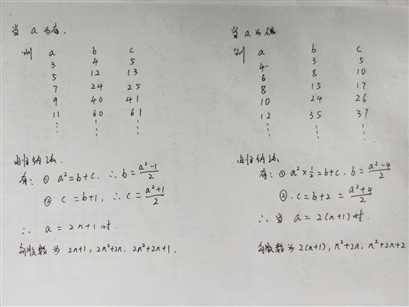 当 a 为奇.
则 a b c
3 4 5
5 12 13
7 24 25
9 40 41
11 60 61
⋮ ⋮ ⋮
由归纳法.
有: ① a²=b+c. ∴ b=\frac{a²-1}{2}
② c=b+1, ∴ c=\frac{a²+1}{2}
∴ a=2n+1时.
勾股数为 2n+1, 2n²+2n, 2n²+2n+1.
当 a 为偶
则 a b c
4 3 5
6 8 10
8 15 17
10 24 26
12 35 37
⋮ ⋮ ⋮
由归纳法.
有: ① a²×\frac{1}{2}=b+c. b=\frac{a²-4}{2}
②. c=b+2=\frac{a²+4}{2}
∴ 当 a=2(n+1)时.
勾股数为 2(n+1), n²+2n, n²+2n+2